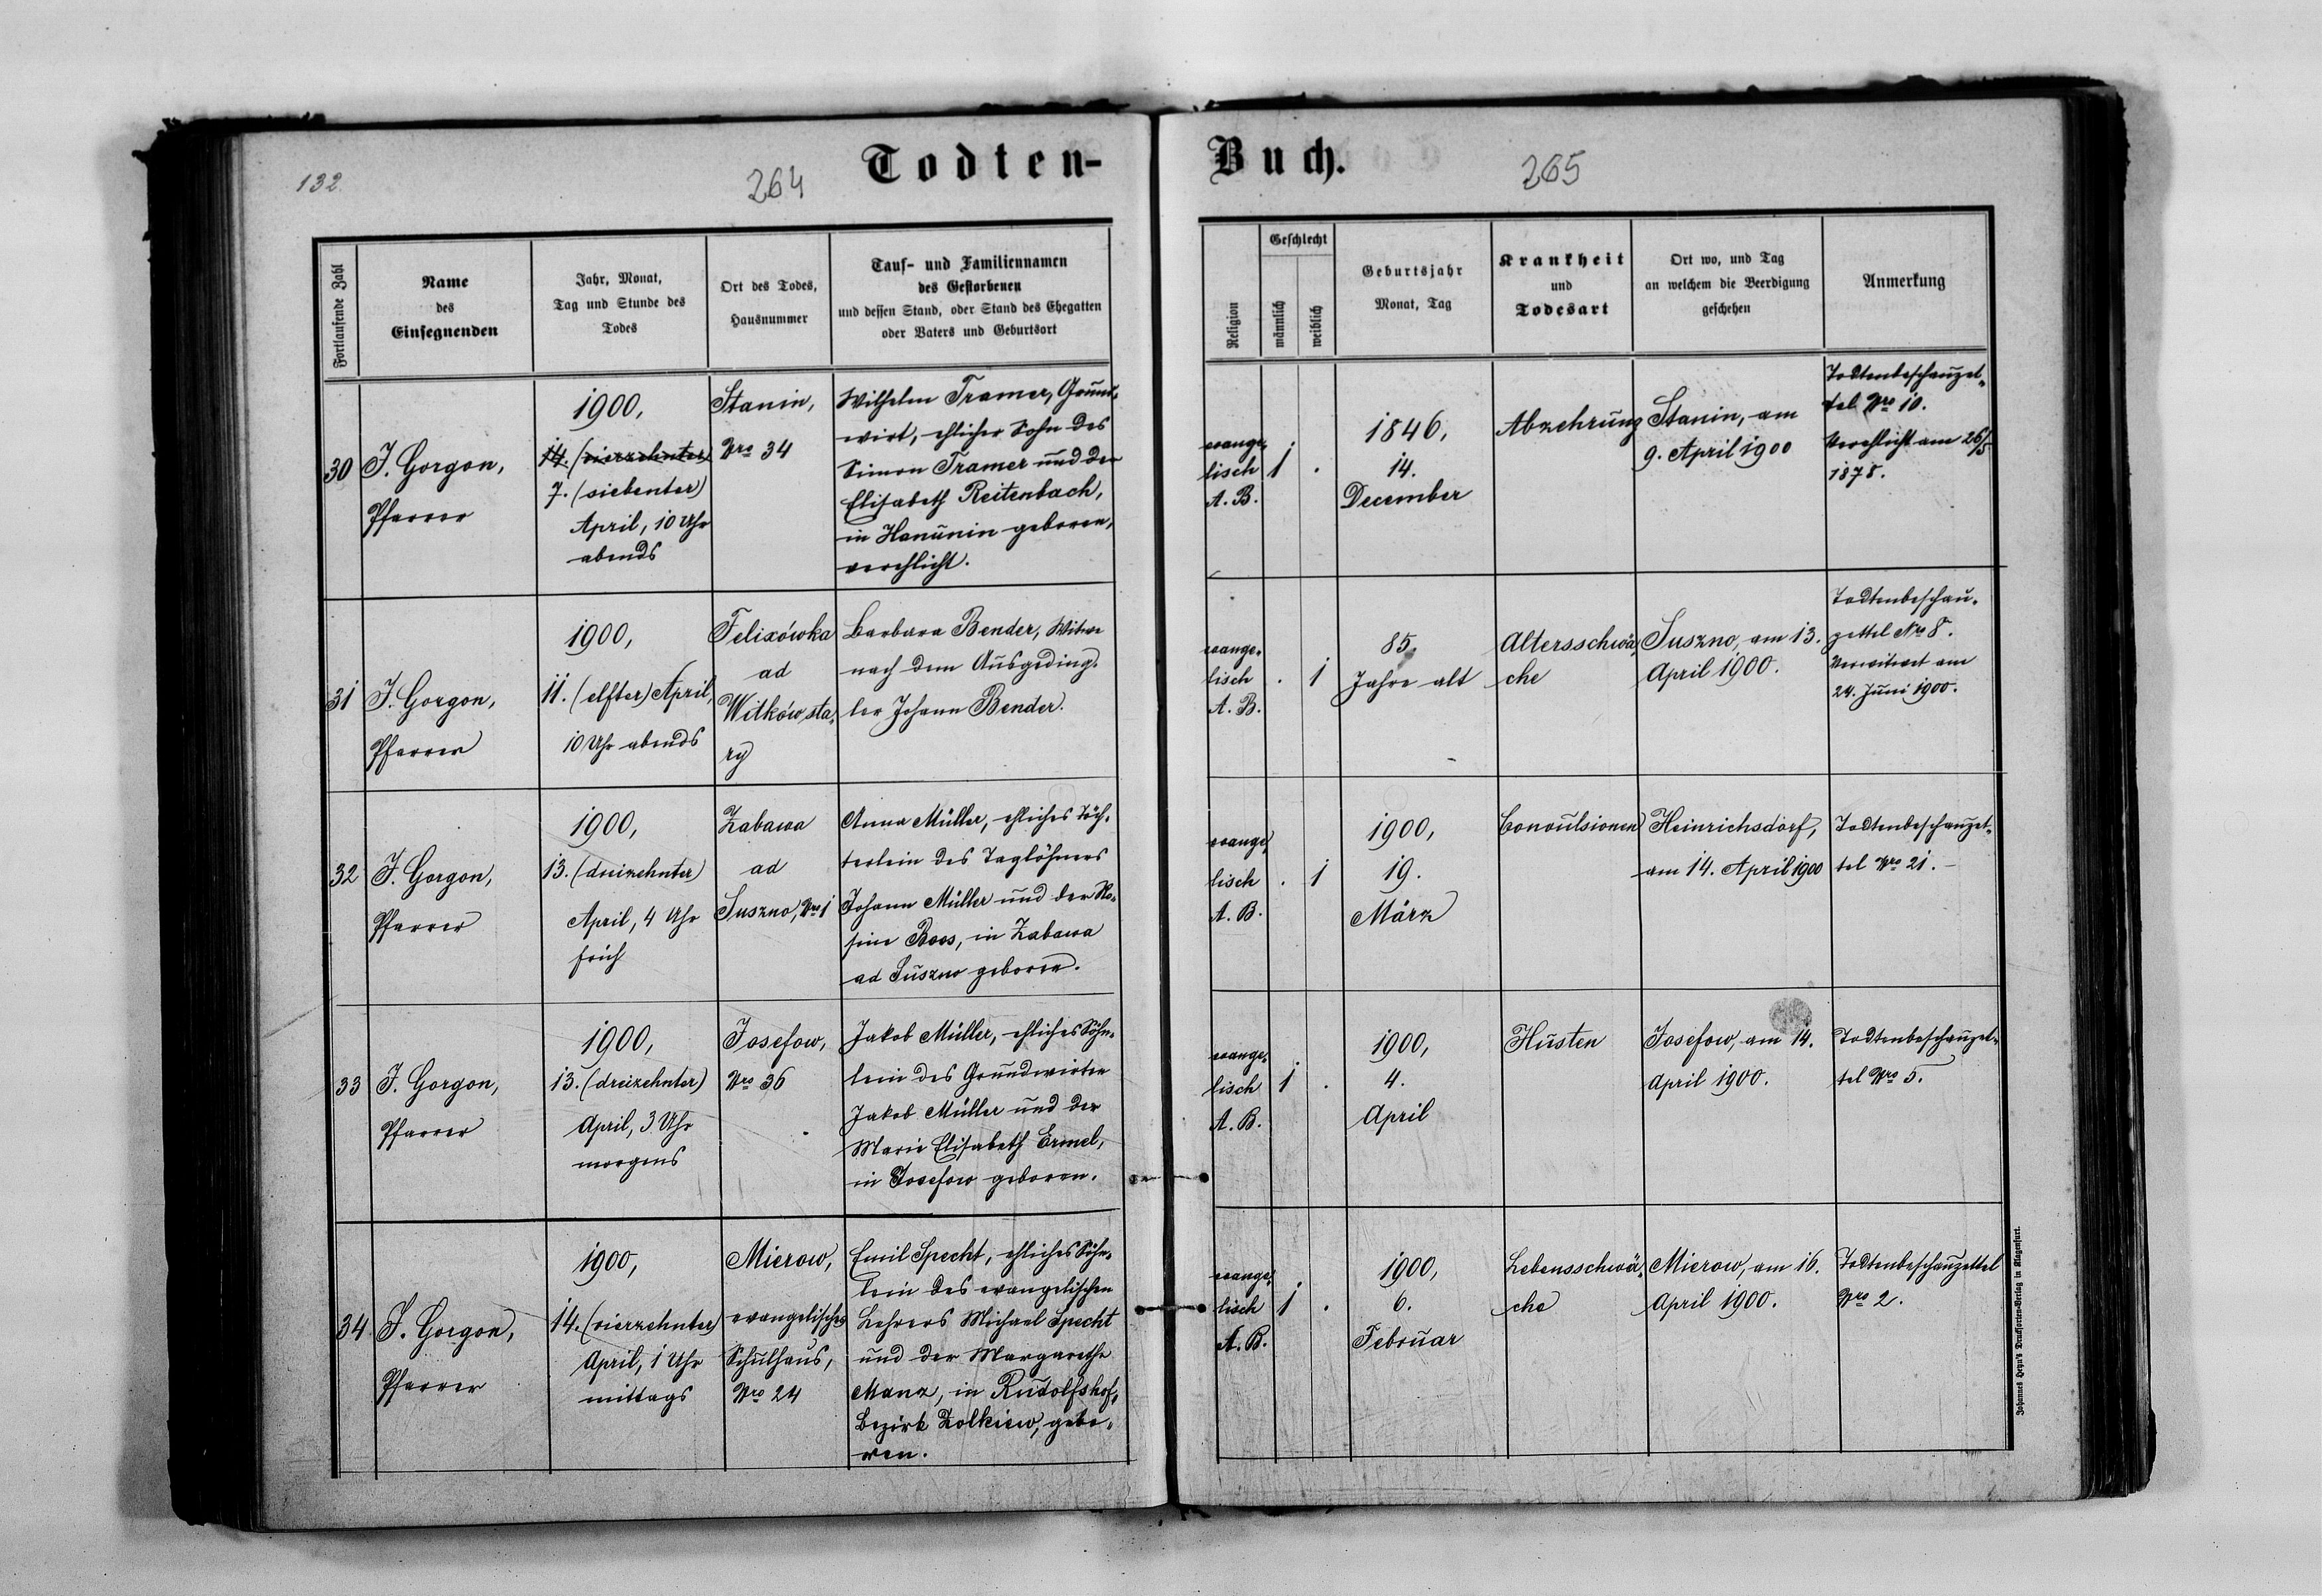 132.
264
Todten-
Fortlaufende Zahl
Name
des
Einsegnenden
Jahr, Monat,
Tag und Stunde des
Todes
Ort des Todes,
Hausnummer
Tauf- und Familiennamen
des Gestorbenen
und dessen Stand, oder Stand des Ehegatten
oder Vaters und Geburtsort
30
J. Gorgon,
Pfarrer
1900,
14. (vierzehnter)
7. (siebenter)
April, 10 Uhr
abends
Stanin,
Nro 34
Wilhelm Tramer, Grund-
wirt, ehlicher Sohn des
Simon Tramer und der
Elisabeth Reitenbach,
in Hanunin geboren,
verehlicht.
31
J. Gorgon,
Pfarrer
1900,
11. (elfter) April,
10 Uhr abends
Felixówka
ad
Witków sta-
ry
Barbara Bender, Witwe
nach dem Ausgeding-
ler Johann Bender.
32
J. Gorgon,
Pfarrer
1900,
13. (dreizehnter)
April, 4 Uhr
früh
Zabawa
ad
Suszno, Nro 1
Anna Müller, ehliches Töch-
terlein des Taglöhners
Johann Müller und der Ro-
sine Boos, in Zabawa
ad Suszno geboren.
33
J. Gorgon,
Pfarrer
1900,
13. (dreizehnter)
April, 3 Uhr
morgens
Josefow,
Nro 36
Jakob Müller, ehliches Söhn-
lein des Grundwirten
Jakob Müller und der
Marie Elisabeth Ermel,
in Josefow geboren.
34.
J. Gorgon,
Pfarrer
1900,
14. (vierzehnter)
April, 1 Uhr
mittags
Mierow,
evangelisches
Schulhaus,
Nro 24
Emil Specht, ehliches Söhn-
lein des evangelischen
Lehrers Michael Specht
und der Margarethe
Manz, in Rudolfshof,
Bezirk Zolkiew, gebo-
ren.
Buch.
265
Religion
Geschlecht
männlich
weiblich
Geburtsjahr
Monat, Tag
Krankheit
und
Todesart
Ort wo, und Tag
an welchem die Beerdigung
geschehen
Anmerkung
evange-
lisch
A. B.
1
.
1846,
14.
December
Abzehrung
Stanin, am
9. April 1900
Todtenbeschauzet-
tel Nro 10.
Verehlicht am 26/5
1878.
evange-
lisch
A. B.
.
1
85.
Jahre alt
Altersschwä-
che
Suszno, am 13.
April 1900.
Todtenbeschau-
zettel Nro 8.
Verwitwet am
24. Juni 1900.
evange-
lisch
A. B.
.
1
1900,
19.
März
Convulsionen
Heinrichsdorf,
am 14. April 1900
Todtenbeschauzet-
tel Nro 21. –
evange-
lisch
A. B.
1
.
1900,
4.
April
Husten
Josefow, am 14.
April 1900.
Todtenbeschauzet-
tel Nro 5.
evange-
lisch
A. B.
1
.
1900,
6.
Februar
Lebensschwä-
che
Mierow, am 16.
April 1900.
Todtenbeschauzettel
Nro 2.
Johannes Heyn's Drucksorten-Verlag in Klagenfurt.